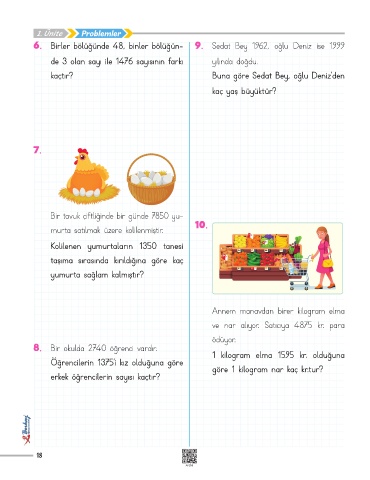 1. Ünite Problemler
6. Birler bölüğünde 48, binler bölüğün-
de 3 olan sayı ile 1476 sayısının farkı
kaçtır?
7.
Bir tavuk çiftliğinde bir günde 7850 yu-
murta satılmak üzere kolilenmiştir.
Kolilenen yumurtaların 1350 tanesi
taşıma sırasında kırıldığına göre kaç
yumurta sağlam kalmıştır?
8. Bir okulda 2740 öğrenci vardır.
Öğrencilerin 1375'i kız olduğuna göre
erkek öğrencilerin sayısı kaçtır?
9. Sedat Bey 1962, oğlu Deniz ise 1999
yılında doğdu.
Buna göre Sedat Bey, oğlu Deniz'den
kaç yaş büyüktür?
10.
Annem manavdan birer kilogram elma
ve nar alıyor. Satıcıya 4875 kr. para
ödüyor.
1 kilogram elma 1595 kr. olduğuna
göre 1 kilogram nar kaç kr.tur?
18